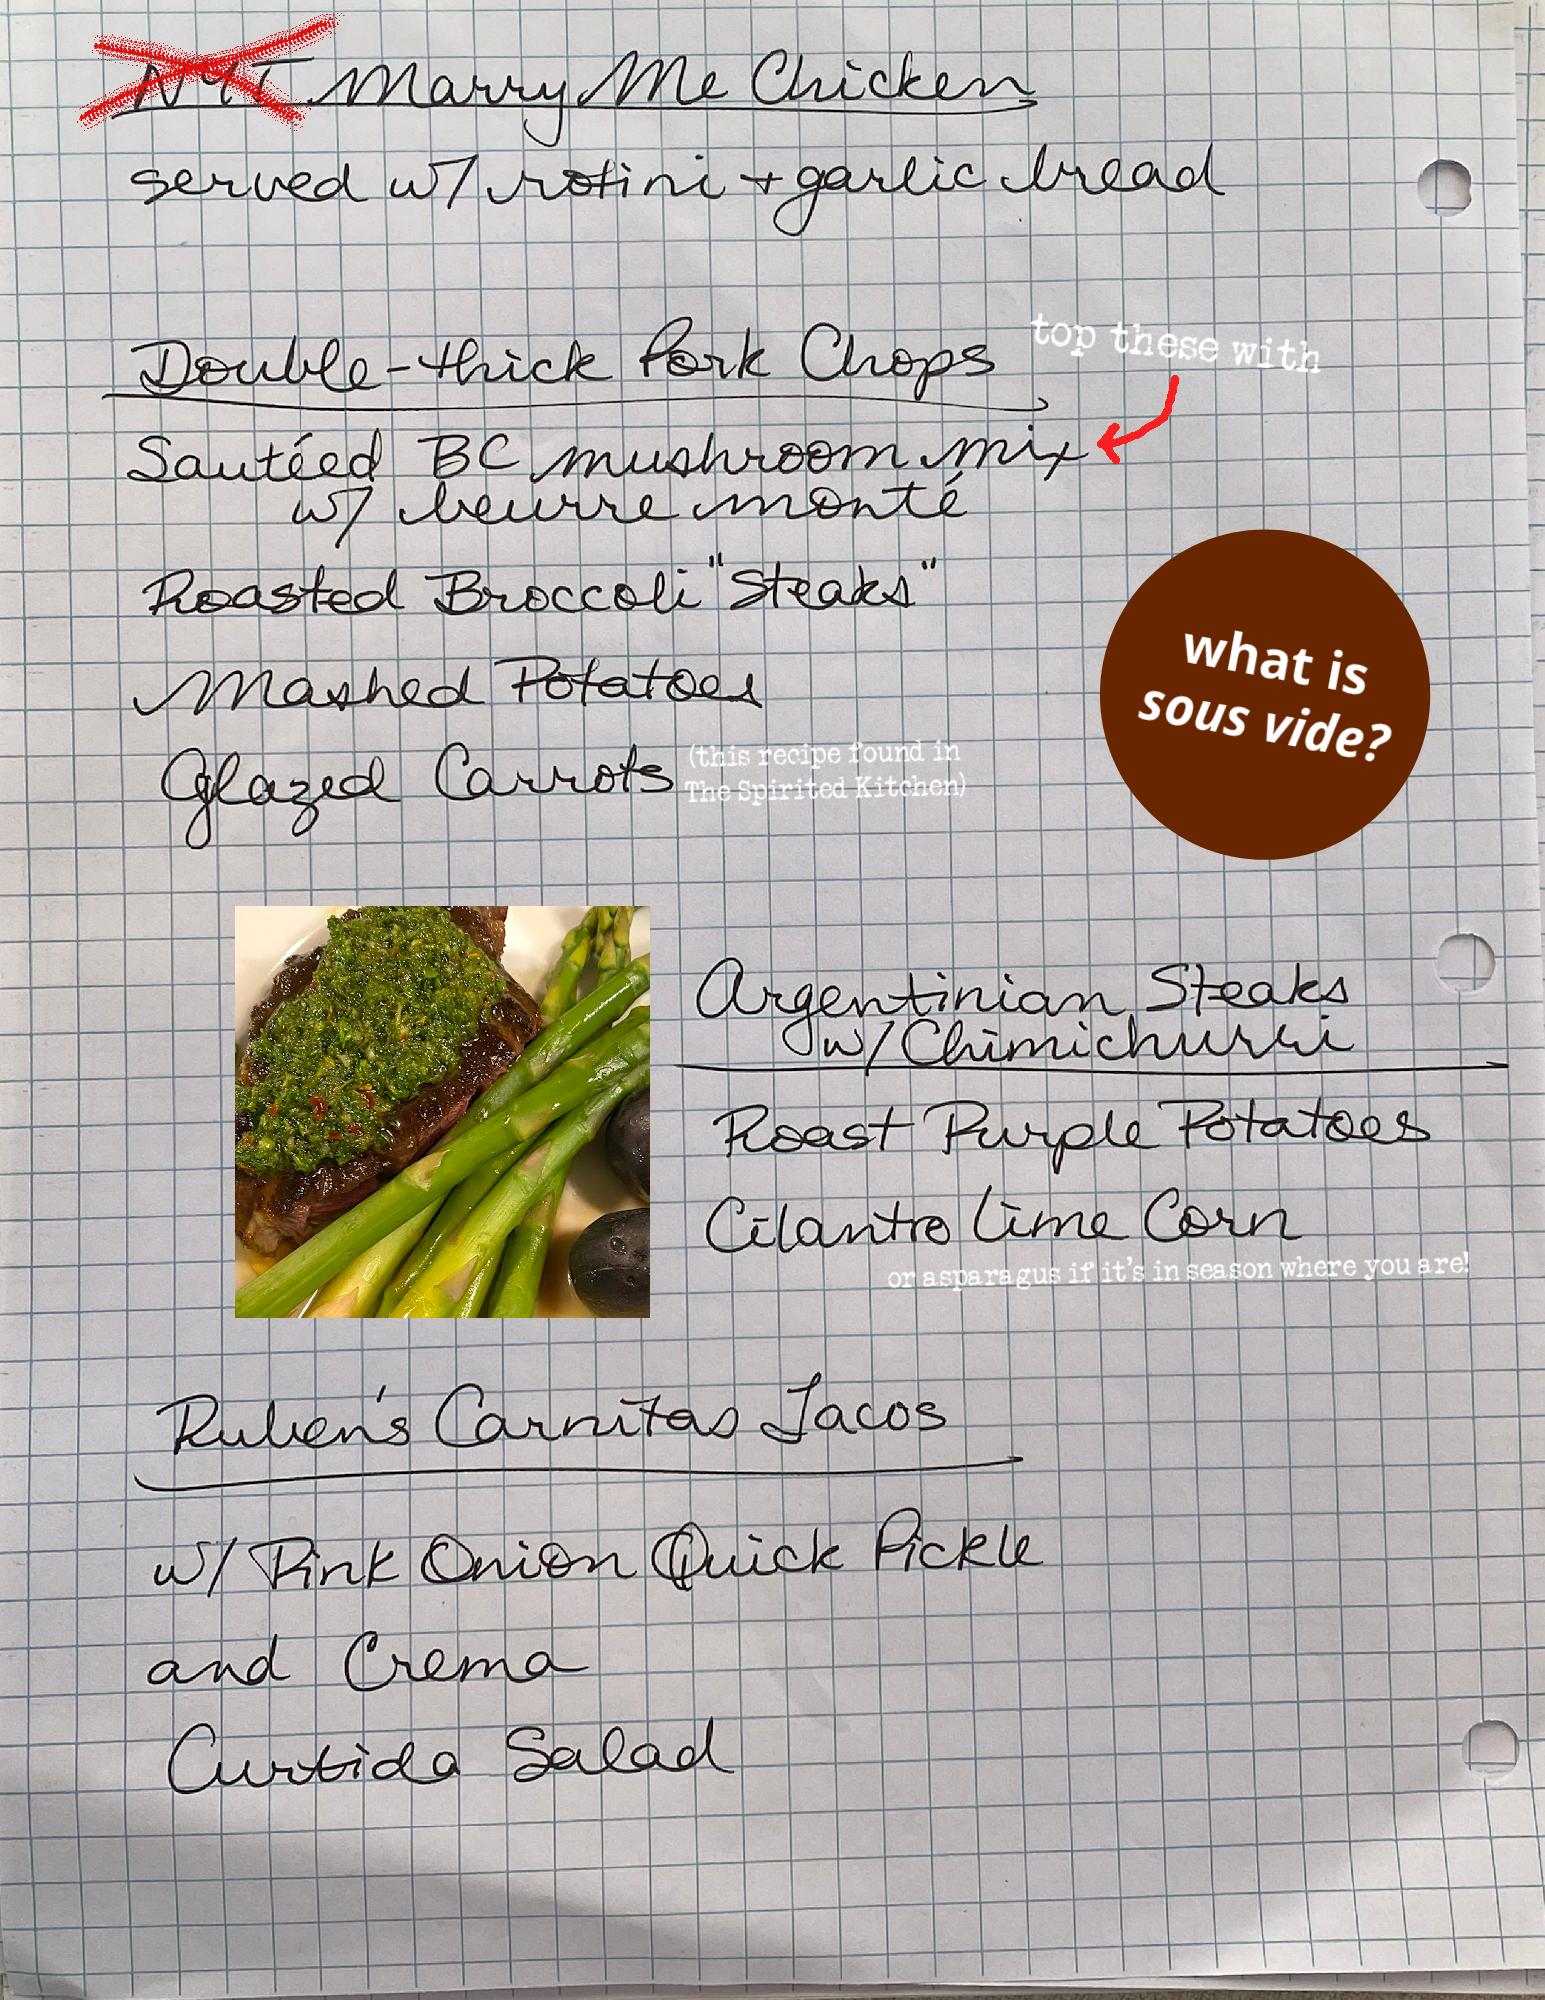 NYT Marry Me Chicken
served w/ rotini + garlic bread
Double-thick Pork Chops
top these with
Sautéed BC mushroom mix
w/ beurre monté
Roasted Broccoli "Steaks"
what is
sous vide?
Mashed Potatoes
Glazed Carrots
(this recipe found in
The Spirited Kitchen)
Argentinian Steaks
w/ Chimichurri
Roast Purple Potatoes
Cilantro Lime Corn
or asparagus if it's in season where you are!
Ruben's Carnitas Tacos
w/ Pink Onion Quick Pickle
and Crema
Curtida Salad